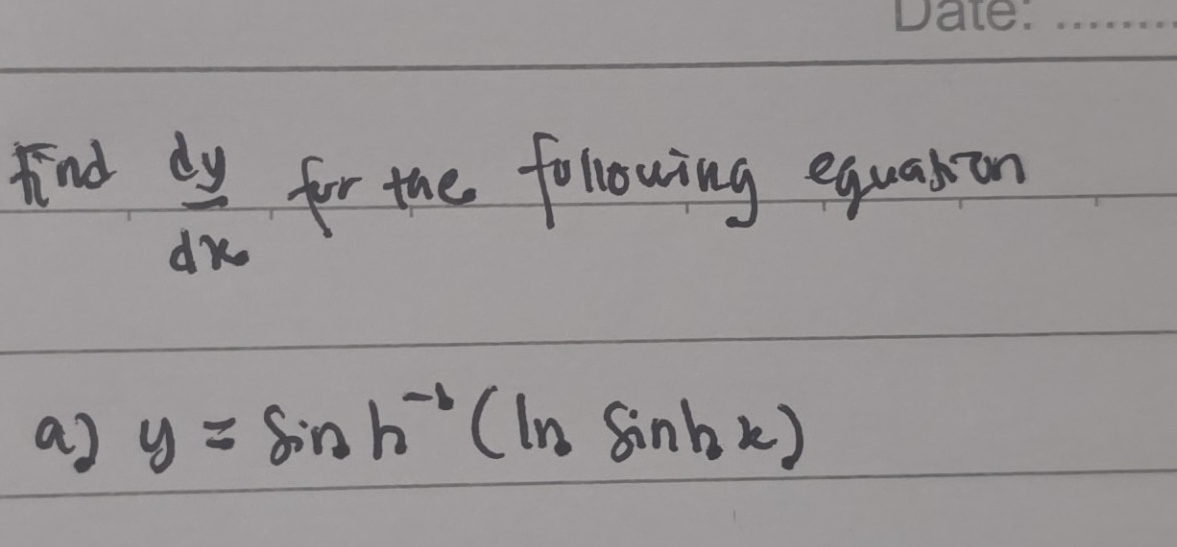 Date: ........
Find dy/dx for the following equation
a) y = sinh⁻¹ (ln sinh x)